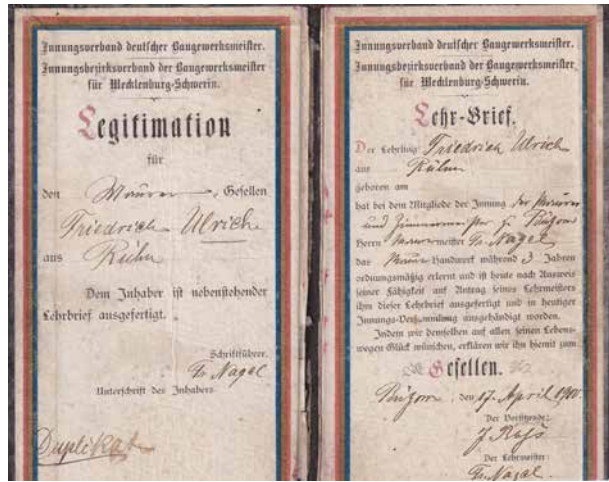 Innungsverband deutscher Baugewerksmeister.
Innungsbezirksverband der Baugewerksmeister
für Mecklenburg-Schwerin.
Legitimation
für
den Maurer Gesellen
Friedrich Ulrich
aus Rühn
Dem Inhaber ist nebenstehender
Lehrbrief ausgefertigt.
Schriftführer.
Fr. Nagel
Unterschrift des Inhabers
Duplikat
Innungsverband deutscher Baugewerksmeister.
Innungsbezirksverband der Baugewerksmeister
für Mecklenburg-Schwerin.
Lehr-Brief.
Der Lehrling Friedrich Ulrich
aus Rühn
geboren am
hat bei dem Mitgliede der Innung der Maurer
und Zimmermeister z. Bützow
Herrn Maurermeister Fr. Nagel
das Maurer Handwerk während 3 Jahren
ordnungsmäßig erlernt und ist heute nach Ausweis
seiner Fähigkeit auf Antrag seines Lehrmeisters
ihm dieser Lehrbrief ausgefertigt und in heutiger
Innungs-Versammlung ausgehändigt worden.
Indem wir demselben auf allen seinen Lebens-
wegen Glück wünschen, erklären wir ihn hiemit zum
Gesellen.
Bützow, den 17. April 1900.
Der Vorsitzende:
Der Lehrmeister:
Fr. Nagel.